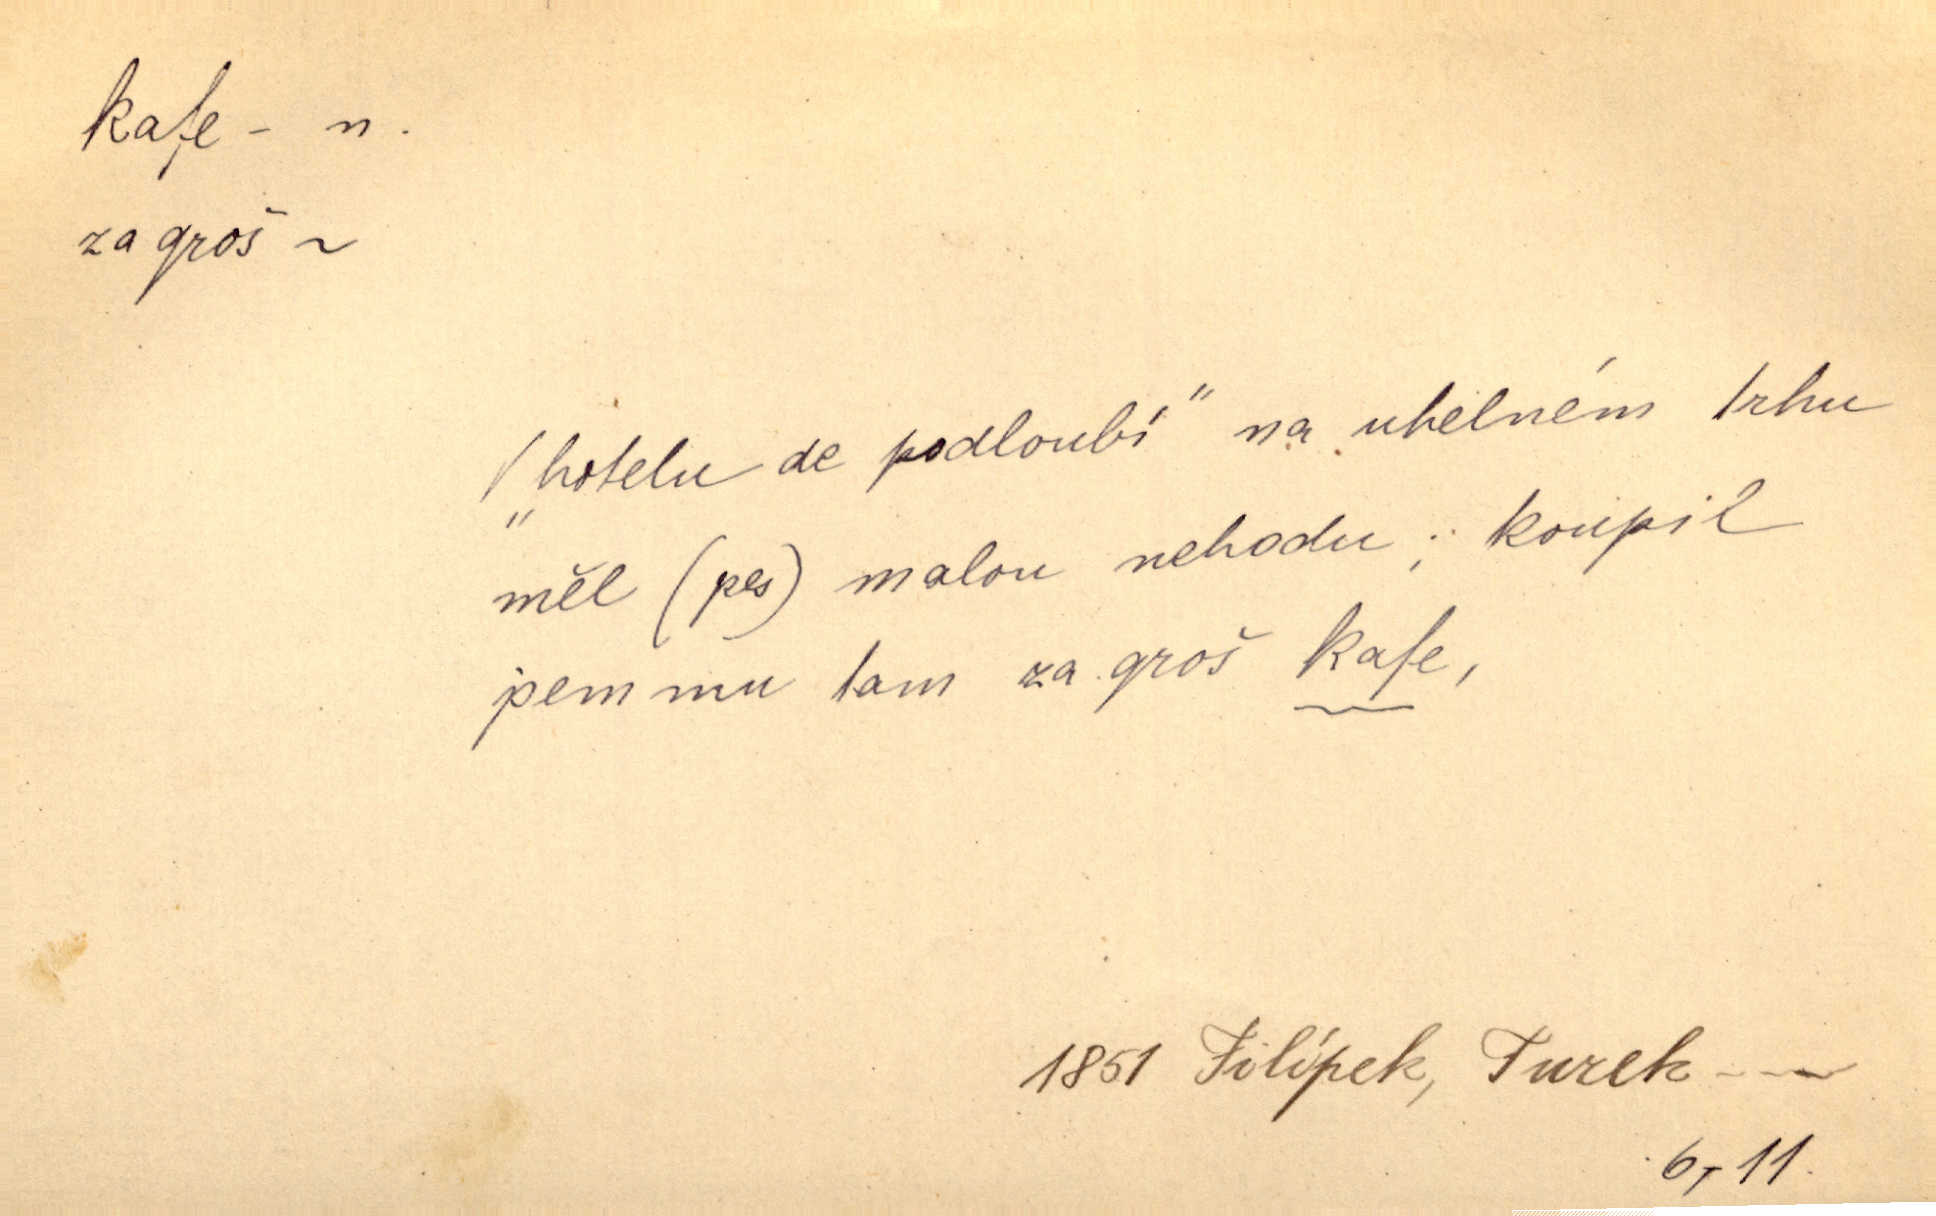 kafe - n.
za groš ~
V „hotelu de podloubí" na uhelném trhu
měl (pes) malou nehodu; koupil
jsem mu tam za groš kafe,
1851 Filípek, Turek - -
6, 11.